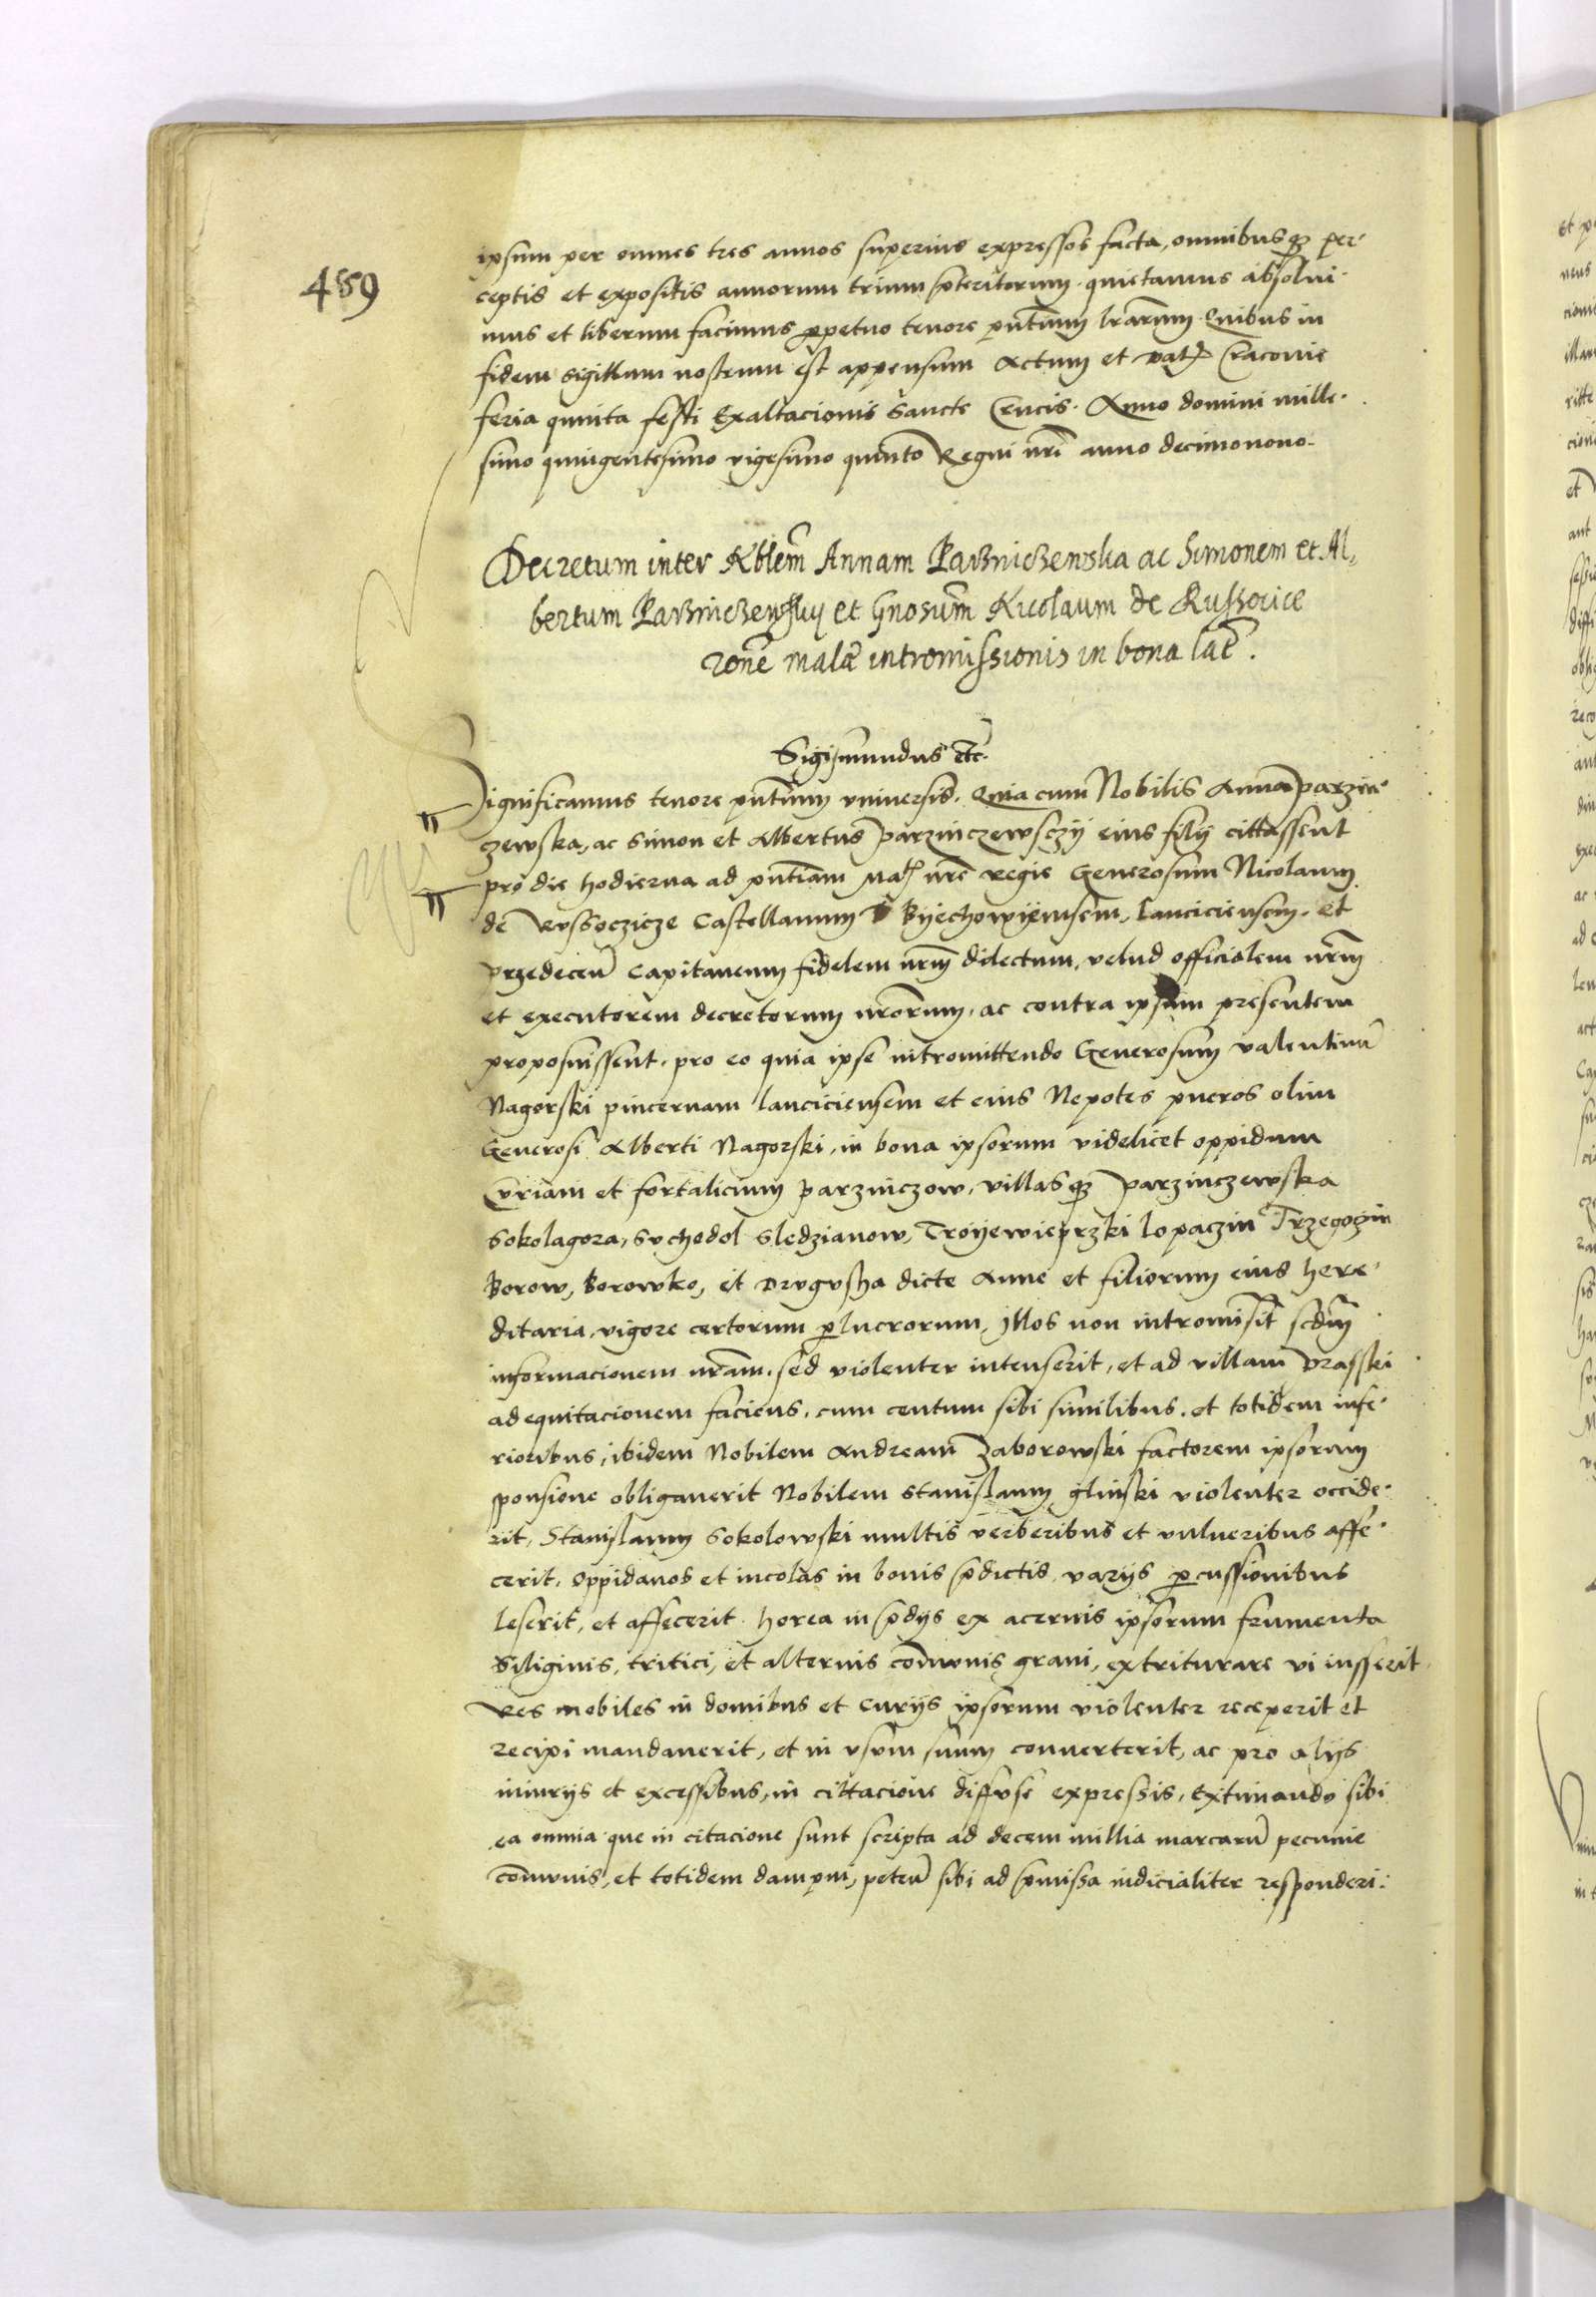 489
ipsum per omnes tres annos superius expressos facta, omnibusq3 per-
ceptis et expositis annorum trium pteritorum. quietamus absolui-
mus et liberum facimus ppetuo tenore pntium lrarum. Quibus in
fidem sigillum nostrum est appensum Actum et dat Cracovie
feria quinta festi Exaltacionis Sancte Crucis. Anno domini mille-
simo quingentesimo vigesimo quinto Regni nri anno decimonono.
Decretum inter Nblem Annam Parzniczewska ac Simonem et Al-
bertum Parzniczewssky et Gnosum Nicolaum de Russocice
rone malae intromissionis in bona
Sigismundus etc.
Significamus tenore pntium vniuersis. Quia cum Nobilis Anna Parzin-
czewska, ac Simon et Albertus Parzinczewsczy eius filij cittassent
pro die hodierna ad pntiam Matis nre regie Generosum Nicolaum
de Russoczicze Castellanum Byechowyensem, Lanciciensem. et
Przedecen Capitaneum fidelem nrm dilectum, velud officialem nrm
et executorem decretorum nrorum, ac contra ipsum presentem
proposuissent. pro eo quia ipse intromittendo Generosum Valentinu
Nagorski pincernam lanciciensem et eius Nepotes pueros olim
Generosi Alberti Nagorski, in bona ipsorum videlicet oppidum
Curiam et fortalicium Parzinczow, villasq3 Parzinczewska
Sokolagora, Suchodol Sledzianow, Troyewieprzki Lopaczin Trzegoczin
Borow, Borowko, et Drugusha dicte Anne et filiorum eius here-
ditaria, vigore certorum plucrorum, Illos non intromisit scdm
informacionem nram. sed violenter intenserit, et ad villam Prasski
adequitacionem faciens, cum centum sibi similibus. et totidem infe-
rioribus, ibidem Nobilem Andream Zaborowski factorem ipsorum
sponsione obligauerit Nobilem Stanislaum glinski violenter occide-
rit, Stanislaum Sokolowski multis verberibus et vulneribus affe-
cerit, Oppidanos et incolas in bonis pdictis varijs pcussionibus
leserit, et affecerit. horea in pdijs ex aceruis ipsorum frumenta
Siliginis, tritici, et alternis comunis grani, extriturare vi iusserit
Res mobiles in domibus et Curijs ipsorum violenter receperit et
recipi mandauerit, et in vsum suum conuerterit, ac pro alijs
iniurijs et excessibus, in cittacione diffuse expressis, Extimando sibi
ea omnia que in citacione sunt scripta ad decem millia marcaru pecunie
comunis, et totidem dampni, peteu sibi ad pmissa iudicialiter responderi.